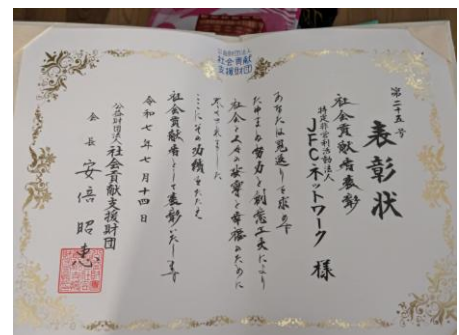 公益財団法人
社会貢献
支援財団
第二十五号
表彰状
社会貢献者表彰
特定非営利活動法人
JFCネットワーク 様
あなたは見返りを求めず
たゆまぬ努力と創意工夫により
社会と人々の安寧と幸福のために
尽くされました
ここにその功績をたたえ
社会貢献者として表彰いたします
令和七年七月十四日
公益財団法人社会貢献支援財団
会長 安倍昭恵